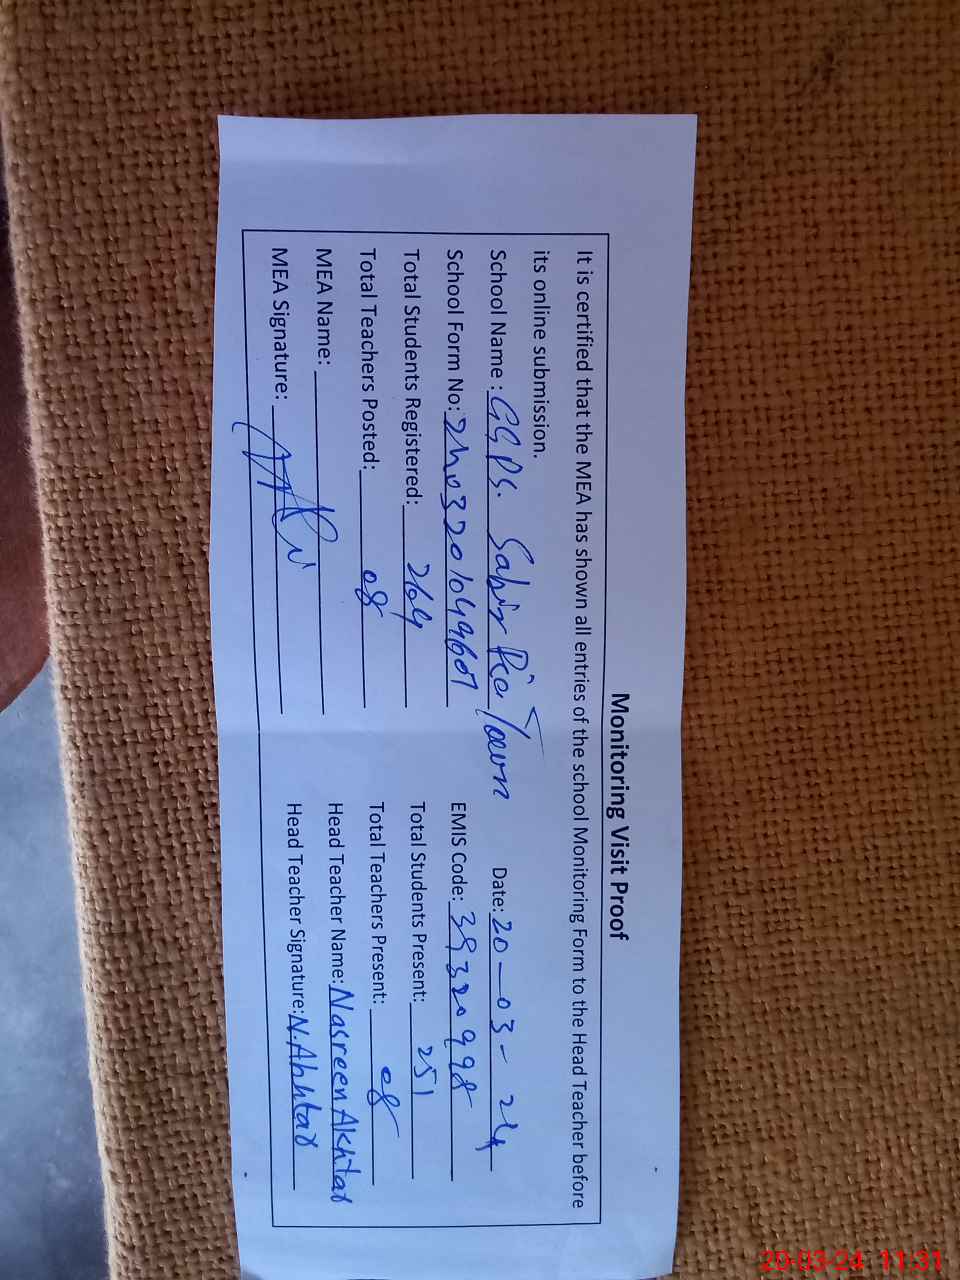 Monitoring Visit Proof
It is certified that the MEA has shown all entries of the school Monitoring Form to the Head Teacher before
its online submission.
School Name : GGPS. Sabir Pia Town Date: 20-03-24
School Form No: EMIS Code: 39320998
Total Students Registered: 264 Total Students Present: 251
Total Teachers Posted: 08 Total Teachers Present: 08
MEA Name: Head Teacher Name: Nasreen Akhtar
MEA Signature: Head Teacher Signature: N.Akhtar
20-03-24 11:31